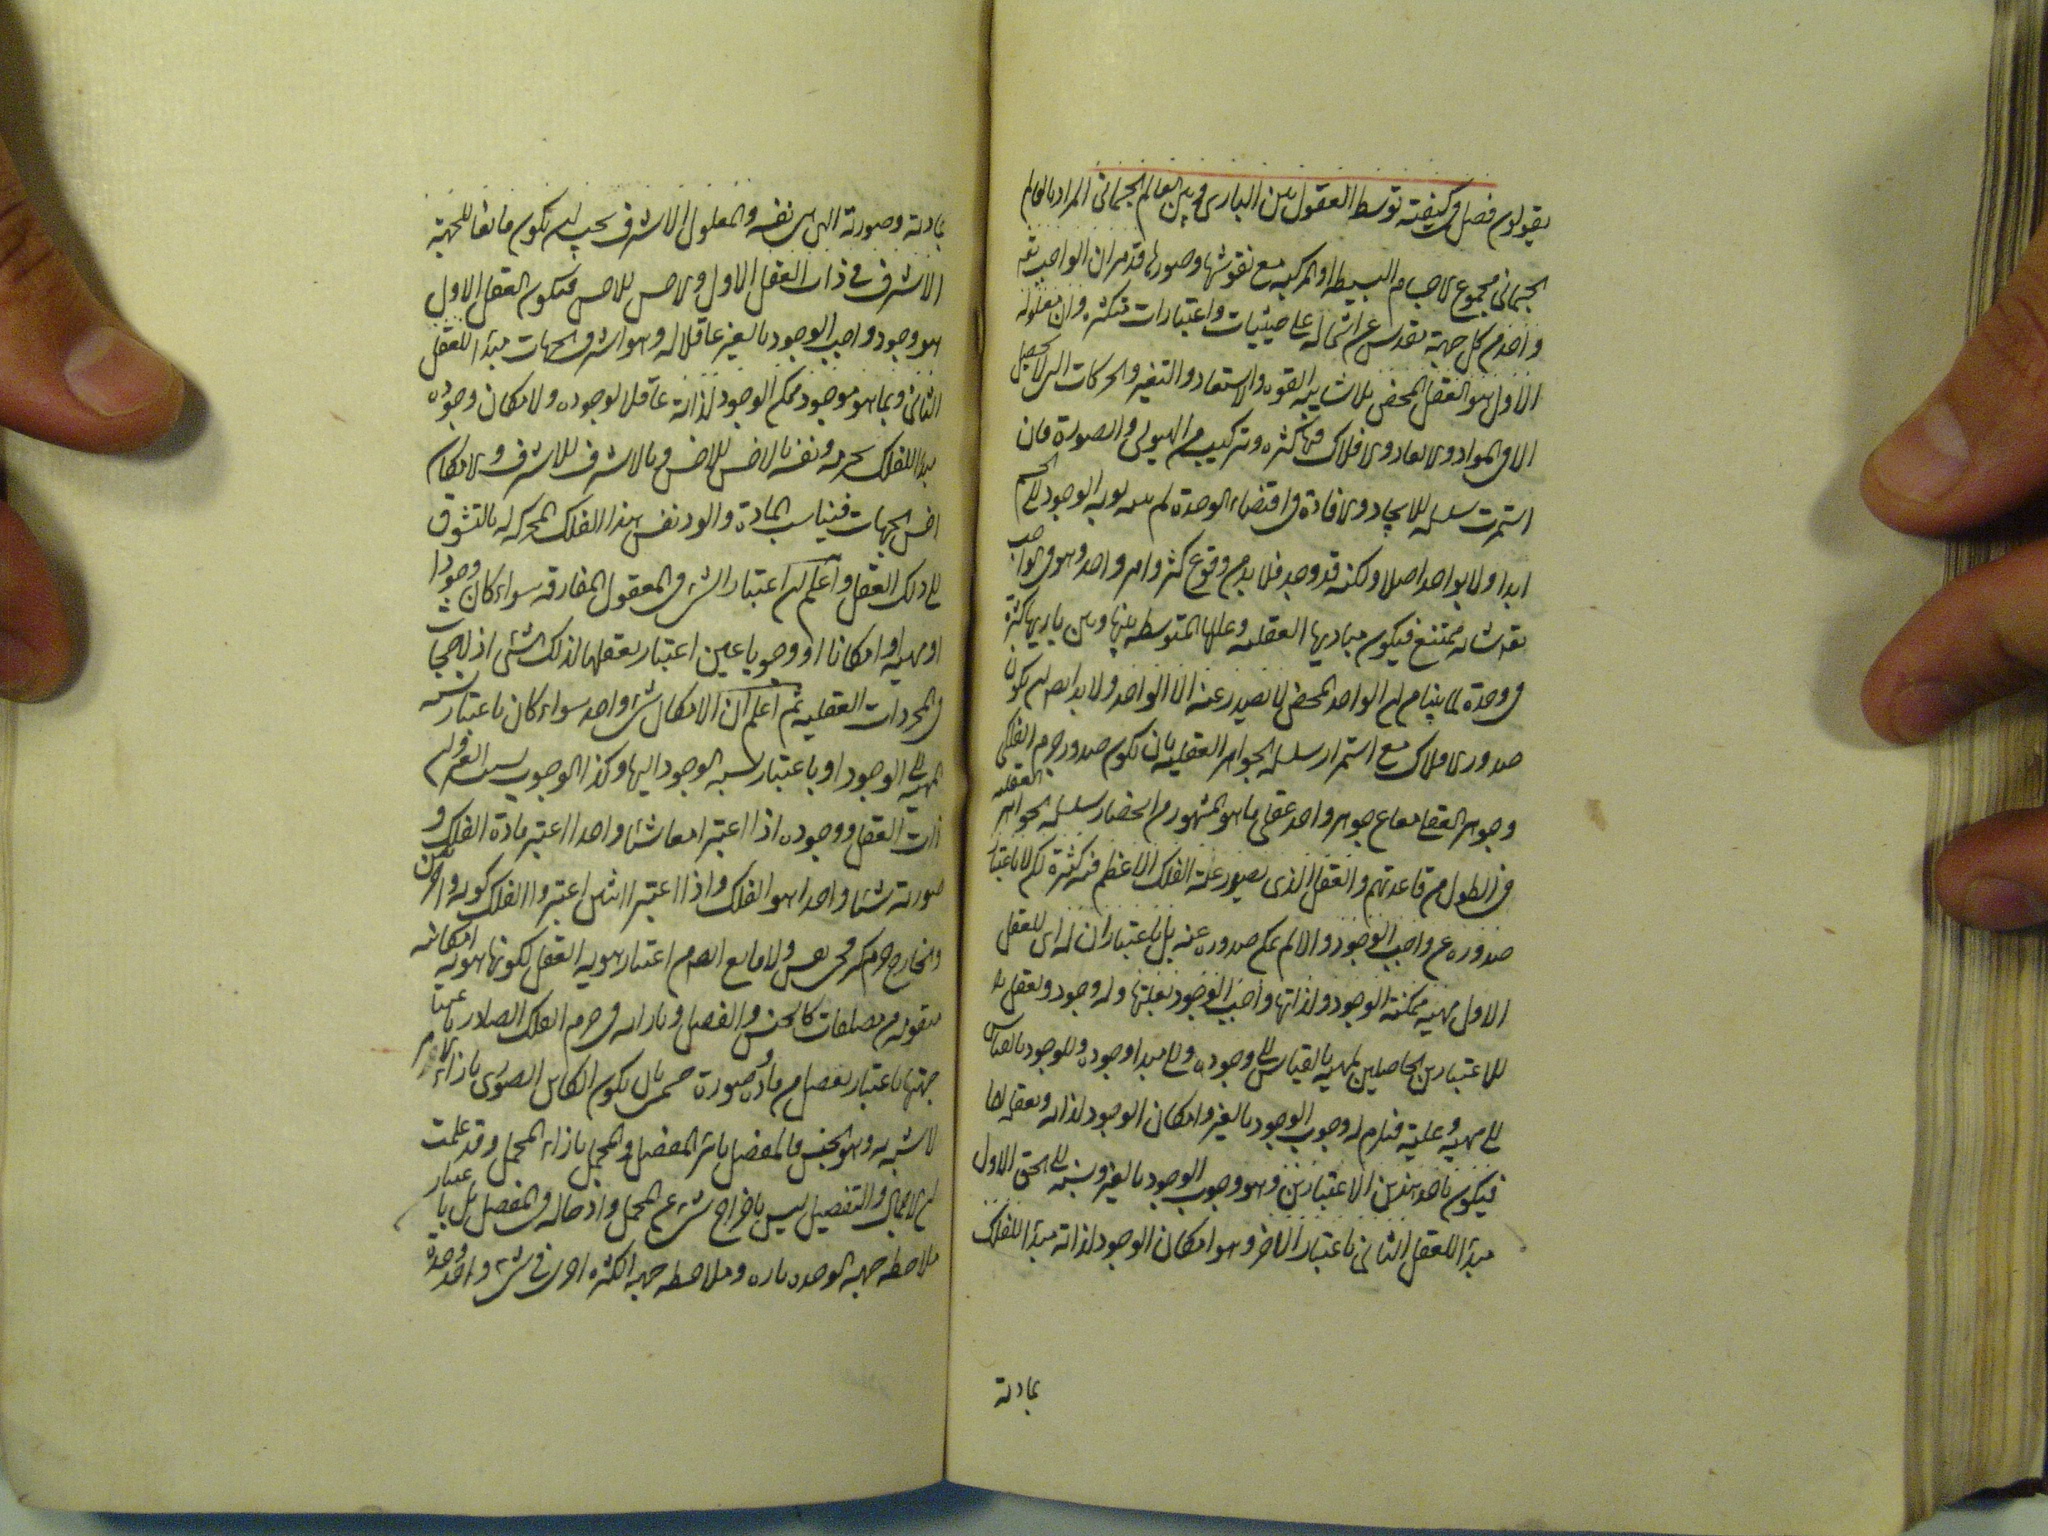 يقولون فصل في كيفيته توسط العقول بين الباري وبين العالم الجسماني المراد بالعالم
الجسماني مجموع الاجسام البسيطه او المركبه مع نفوسها وصورها قد مر ان الواجب تعه
واحد من كل جهته تقدس عن اشتماله علي حيثيات واعتبارات متكثره وان معلوله
الاول هو العقل المحض بلا شايبه القوه والاستعداد والتغير والحركات التي لا تحصل
الا في المواد والابعاد والافلاك فيها كثره وتركيب من الهيولي والصورة فان
استمرت سلسله الايجاد والافادة في اقتضاء الوحدة لم الوجود الي الجسم
ابدا ولا بواحد اصلا ولكنه قد وجد فلا بد من وقوع كثره وامر واحد وهو في الواجب
تعه شانه ممتنع فيكون مباديها العقليه وعللها المتوسطه بينها وبين باريها كثرة
في وحدة لما بينا من ان الواحد المحض لا يصدر عنه الا الواحد ولا بد ايضا ان يكون
صدور الافلاك مع استمرار سلسله الجواهر العقليه بان يكون صدور جرم الفلكي
وجوهر العقلي معا عن جوهر واحد عقلي ما هو المشهور من انحصار سلسله الجواهر العقليه
في الطول من قاعدتهم والعقل الذي يصدر عنه الفلك الاعظم فيه كثرة لكن لا باعتبار
صدوره عن واجب الوجود والا لم يمكن صدوره عنه بل باعتبار ان له اي للعقل
الاول مهيه ممكنه الوجود لذاتها واجب الوجود بعلتها وله وجود وتعقل
للاعتبارين الحاصلين لمهيه بالقياس الي وجوده والي مبدا وجوده وللوجود بالقياس
الي مهيه وعليه فيلزم له وجوب الوجود بالغير وامكان الوجود لذاته وتعقل لهما
فيكون باحد هذين الاعتبارين وهو وجوب الوجود بالغير ونسبه الي الحق الاول
مبدا للعقل الثاني باعتبار الاخر وهو امكان الوجود لذاته مبدا للفلك
بمادته
بمادته وصورته التي هي نفسه والمعلول الاشرف يجب ان يكون تابعا للجهته
الاشرف في ذات العقل الاول والاخس للاخس فيكون العقل الاول
هو وجود واجب الوجود بالغير عاقلا له وهو اشرف الجهات مبدا للعقل
الثاني وبما هو موجود ممكن الوجود لذاته عاقلا لوجوده ولامكان وجوده
مبدا للفلك بجرمه ونفسه بالاخس للاخس وبالاشرف للاشرف والامكان
اخس الجهات فيناسب المادة والوجود نفس هذا الفلك المحركه له بالتشوق
الي ذلك العقل واعلم ان اعتبار الشيء في العقول المفارقه سواء كان وجودا
او مهيه او امكانا او وجوبا عين اعتبار تعقلها لذلك الشئ اذ لا حجاب
في المجردات العقليه ثم اعلم ان الامكان شيء واحد سواء كان باعتبار نسبه
المهيه الي الوجود او باعتبار نسبه الوجود اليها وكذا الوجوب
ذات العقل ووجوده اذا اعتبرا معا شيئا واحدا اعتبر مادة الفلك و
صورته شيئا واحدا هو الفلك واذا اعتبرا اثنين اعتبروا الفلك كونه وامرين
والخارج جرم ولا مانع ايضا من اعتبار هويه العقل لكونها هويه امكانيه
متقومه من كالجنس والفصل وبازائه في جرم الفلك الصادر باعتبار
جهتها باعتبار تفصل من مادة وصورة بان يكون الكائن الصوري بازاء الامر
الاشبه به وهو الجنس فالمفصل بازاء المفصل والمجمل بازاء المجمل وقد علمت
ان الاجمال والتفصيل ليس باخراج شيء عن المجمل وادخاله في المفصل بل باعتبار
ملاحظه جهه الوحده تاره وملاحظه جهه الكثره اخري في شيء واحد وحدة